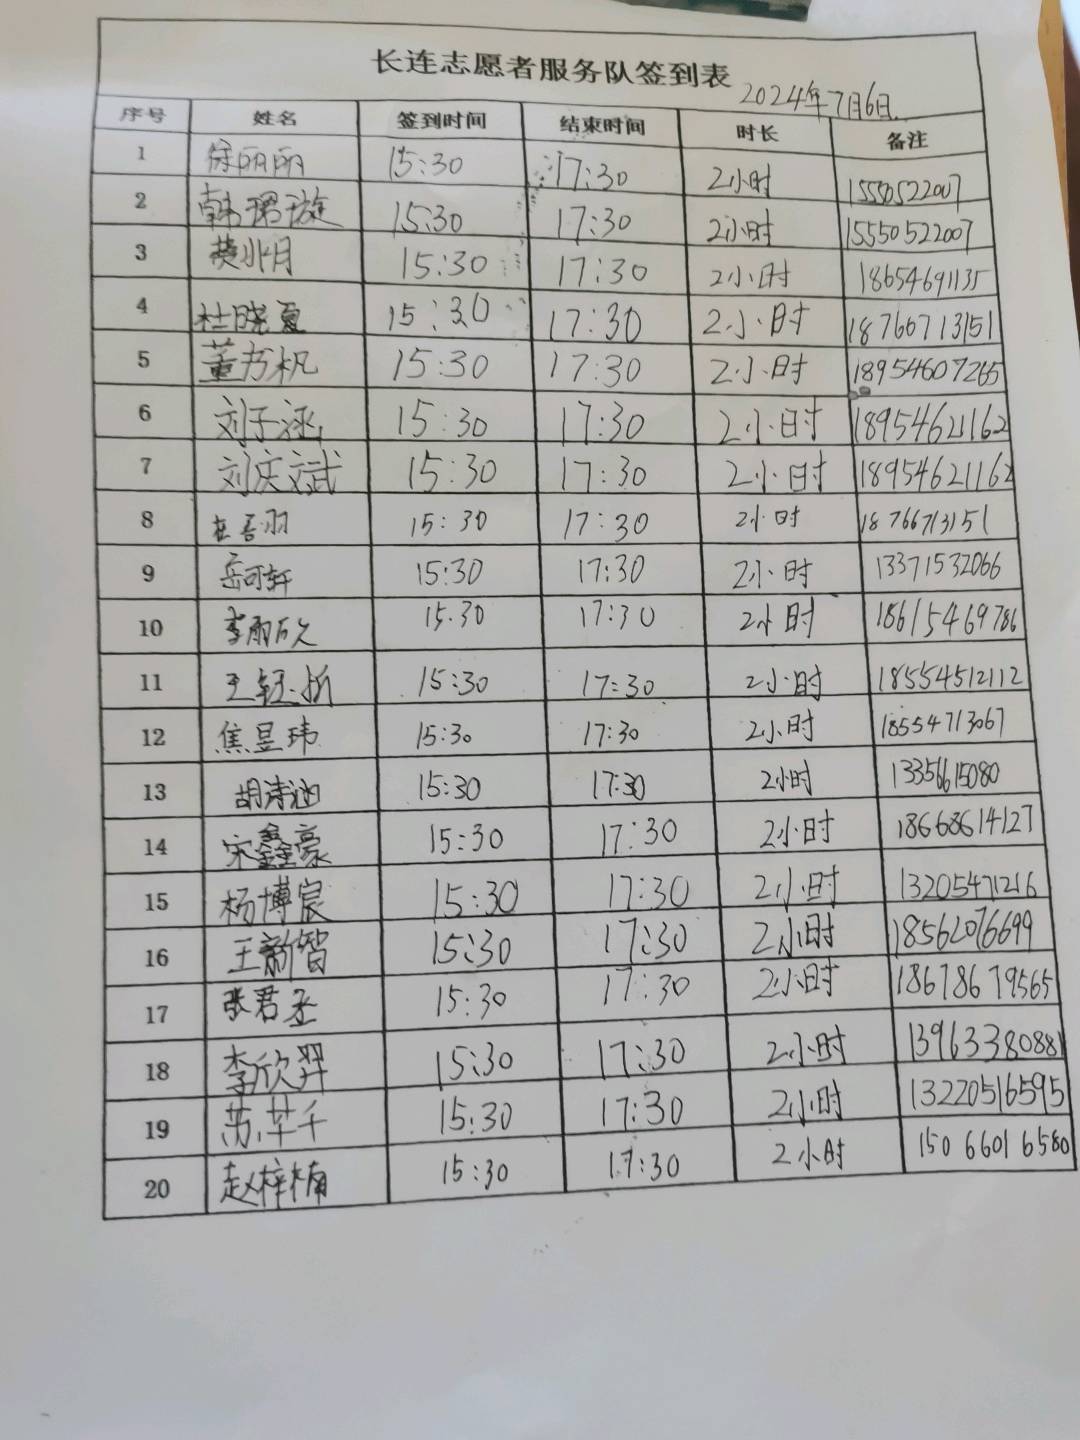 长连志愿者服务队签到表
2024年7月6日
序号 姓名 签到时间 结束时间 时长 备注
1 徐丽丽 15:30 17:30 2小时 15550522007
2 韩珺璇 15:30 17:30 2小时 15550522007
3 15:30 17:30 2小时 18654691135
4 杜晓夏 15:30 17:30 2小时 18766713151
5 董书帆 15:30 17:30 2小时 18954607265
6 刘子涵 15:30 17:30 2小时 18954621162
7 刘庆斌 15:30 17:30 2小时 18954621162
8 15:30 17:30 2小时 18766713151
9 岳可轩 15:30 17:30 2小时 13371532066
10 李雨欣 15:30 17:30 2小时 18615469786
11 15:30 17:30 2小时 18554512112
12 焦昱玮 15:30 17:30 2小时 18554713067
13 胡诗涵 15:30 17:30 2小时 13356615080
14 宋鑫豪 15:30 17:30 2小时 18668614127
15 杨博宸 15:30 17:30 2小时 13205471216
16 王新智 15:30 17:30 2小时 18562076699
17 张君丞 15:30 17:30 2小时 18678679565
18 李欣羿 15:30 17:30 2小时 13963380881
19 苏芊千 15:30 17:30 2小时 13220516595
20 赵梓楠 15:30 17:30 2小时 15066016580